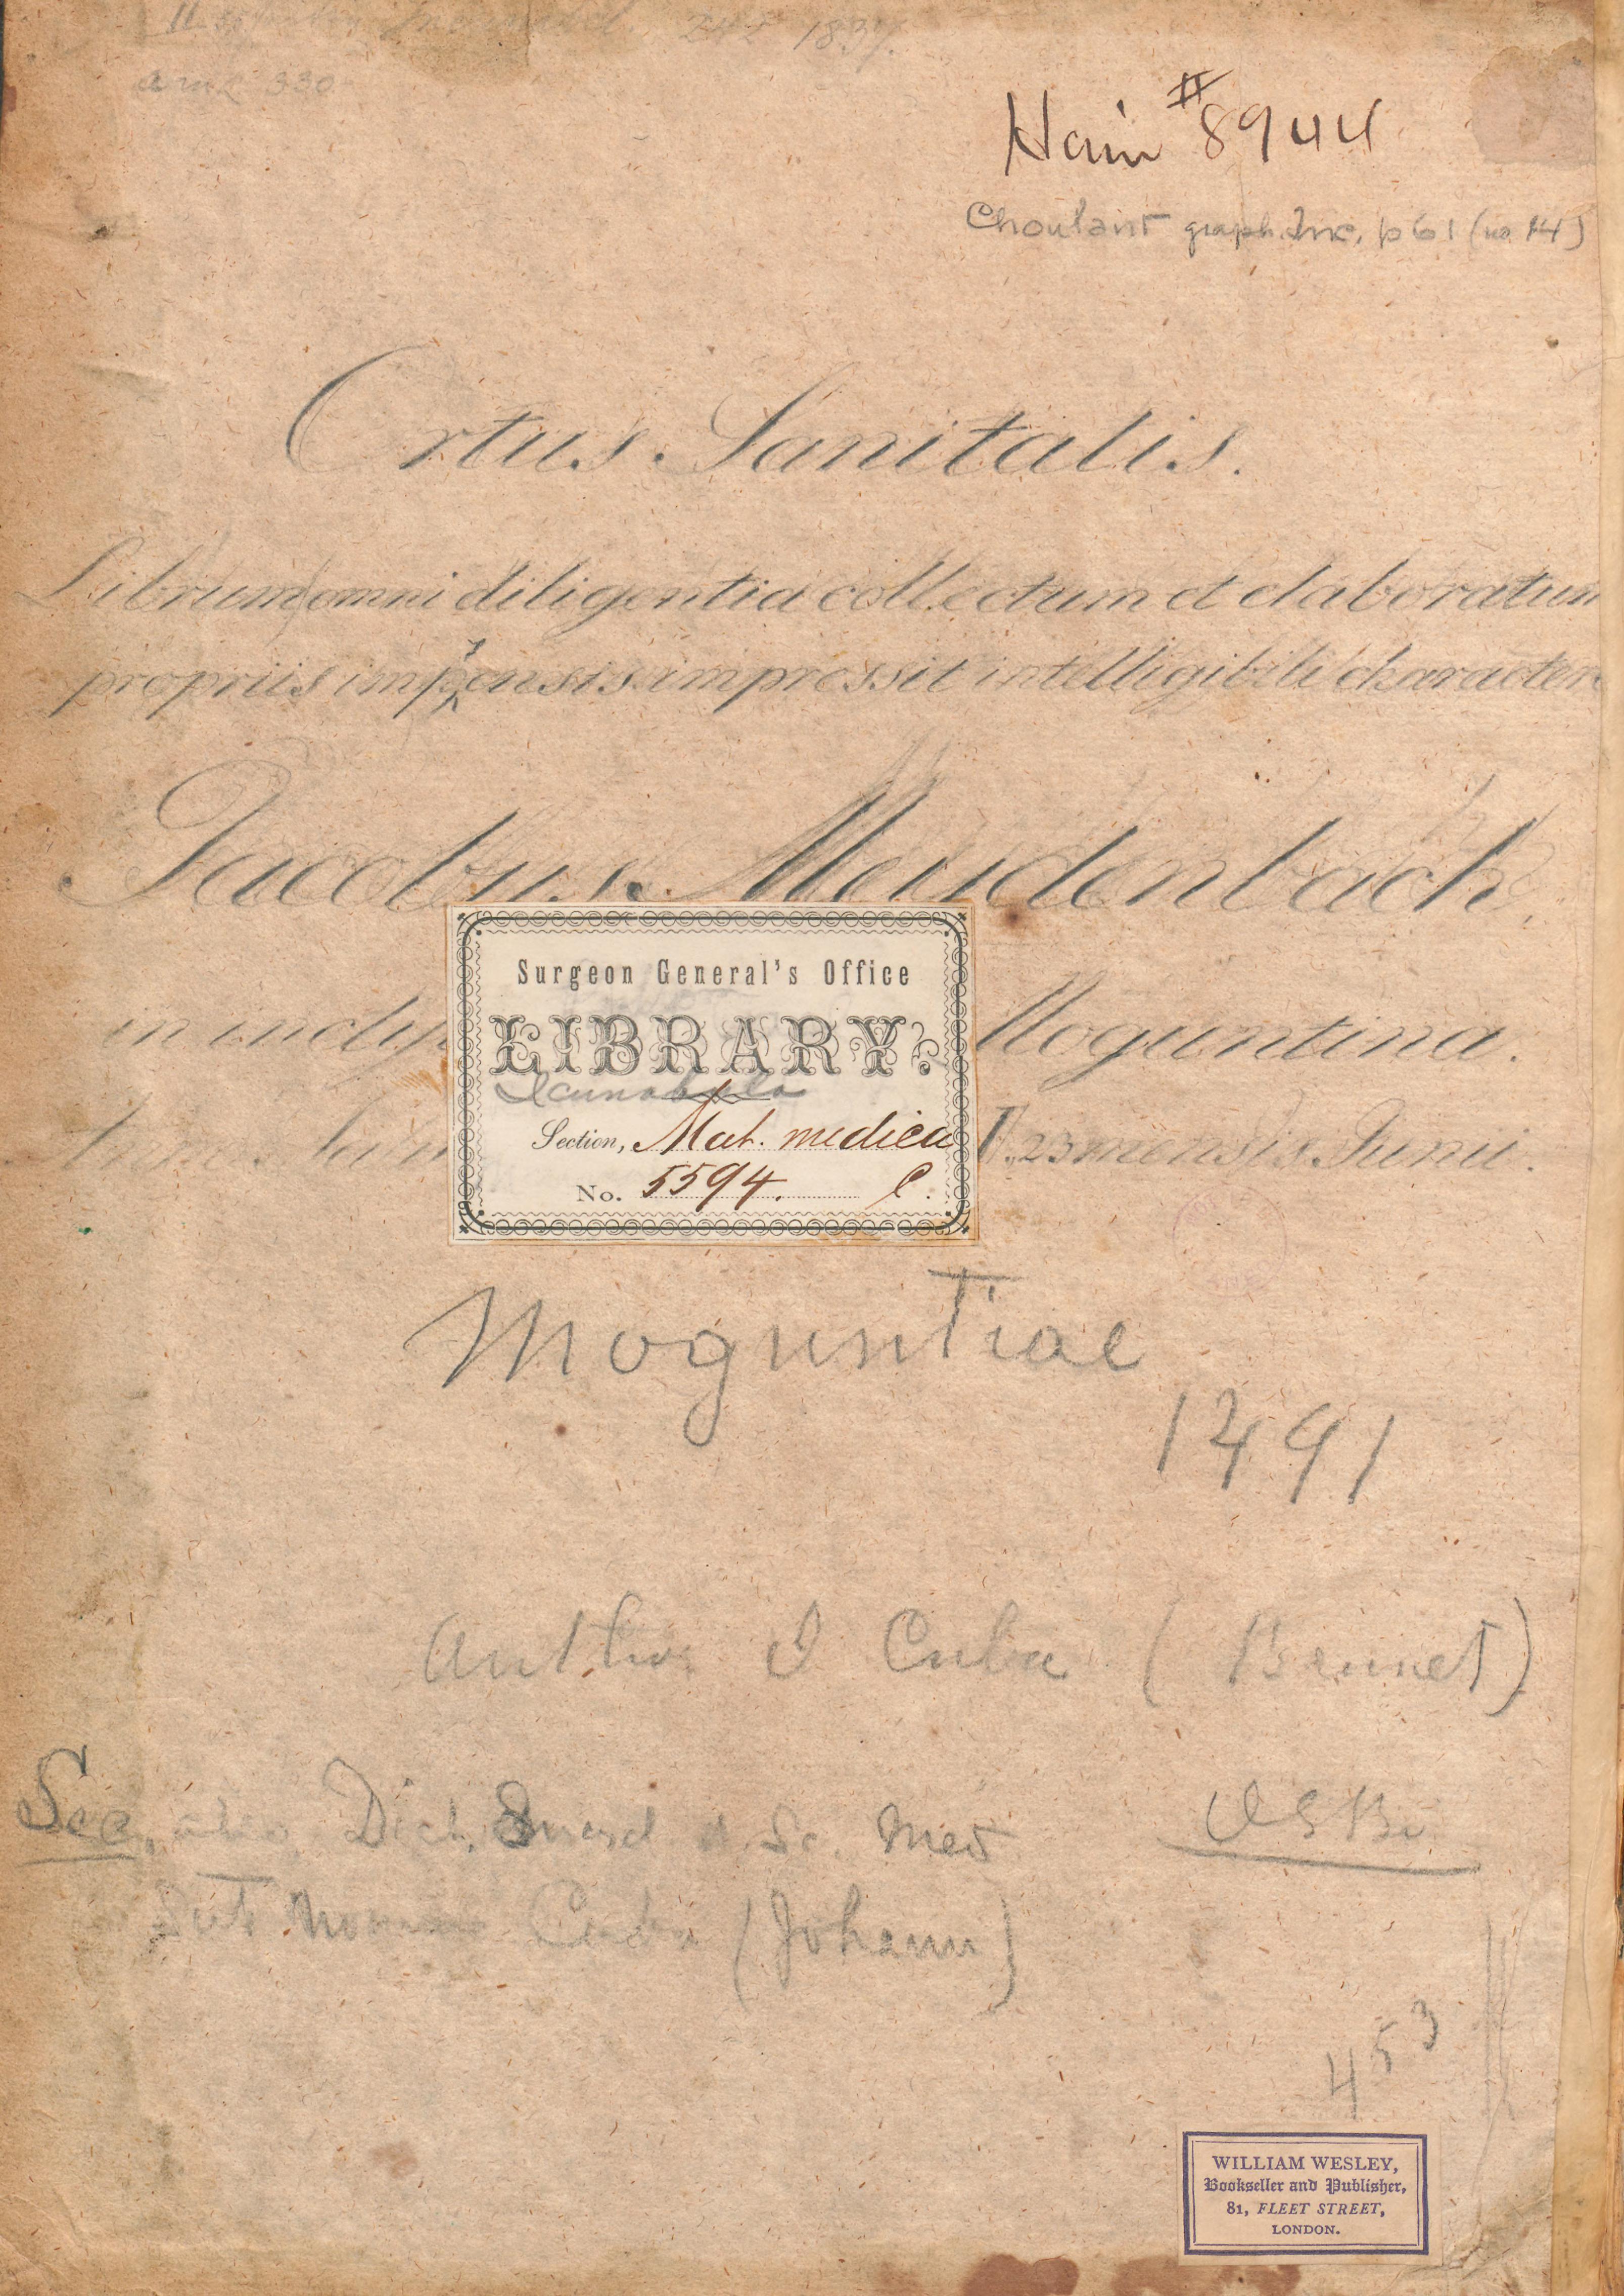 1837.
330
Hain #8944
Choulant graph. Inc. p 61 (no 14)
Ortus. Sanitatis.
Librum omni diligentia collectum et elaboratum
propriis impensis impressit intelligibili character
Jacobus. Meudenbach.
in incly Moguntina.
23 mensis. Junii.
Surgeon General's Office
LIBRARY.
Icunabula
Section, Mat. medica
No. 5594. C.
Moguntiae
1491
Author J Cuba (Brunet)
See, also Dict. Med
Cuba (Johann)
453
WILLIAM WESLEY,
Bookseller and Publisher,
81, FLEET STREET,
LONDON.